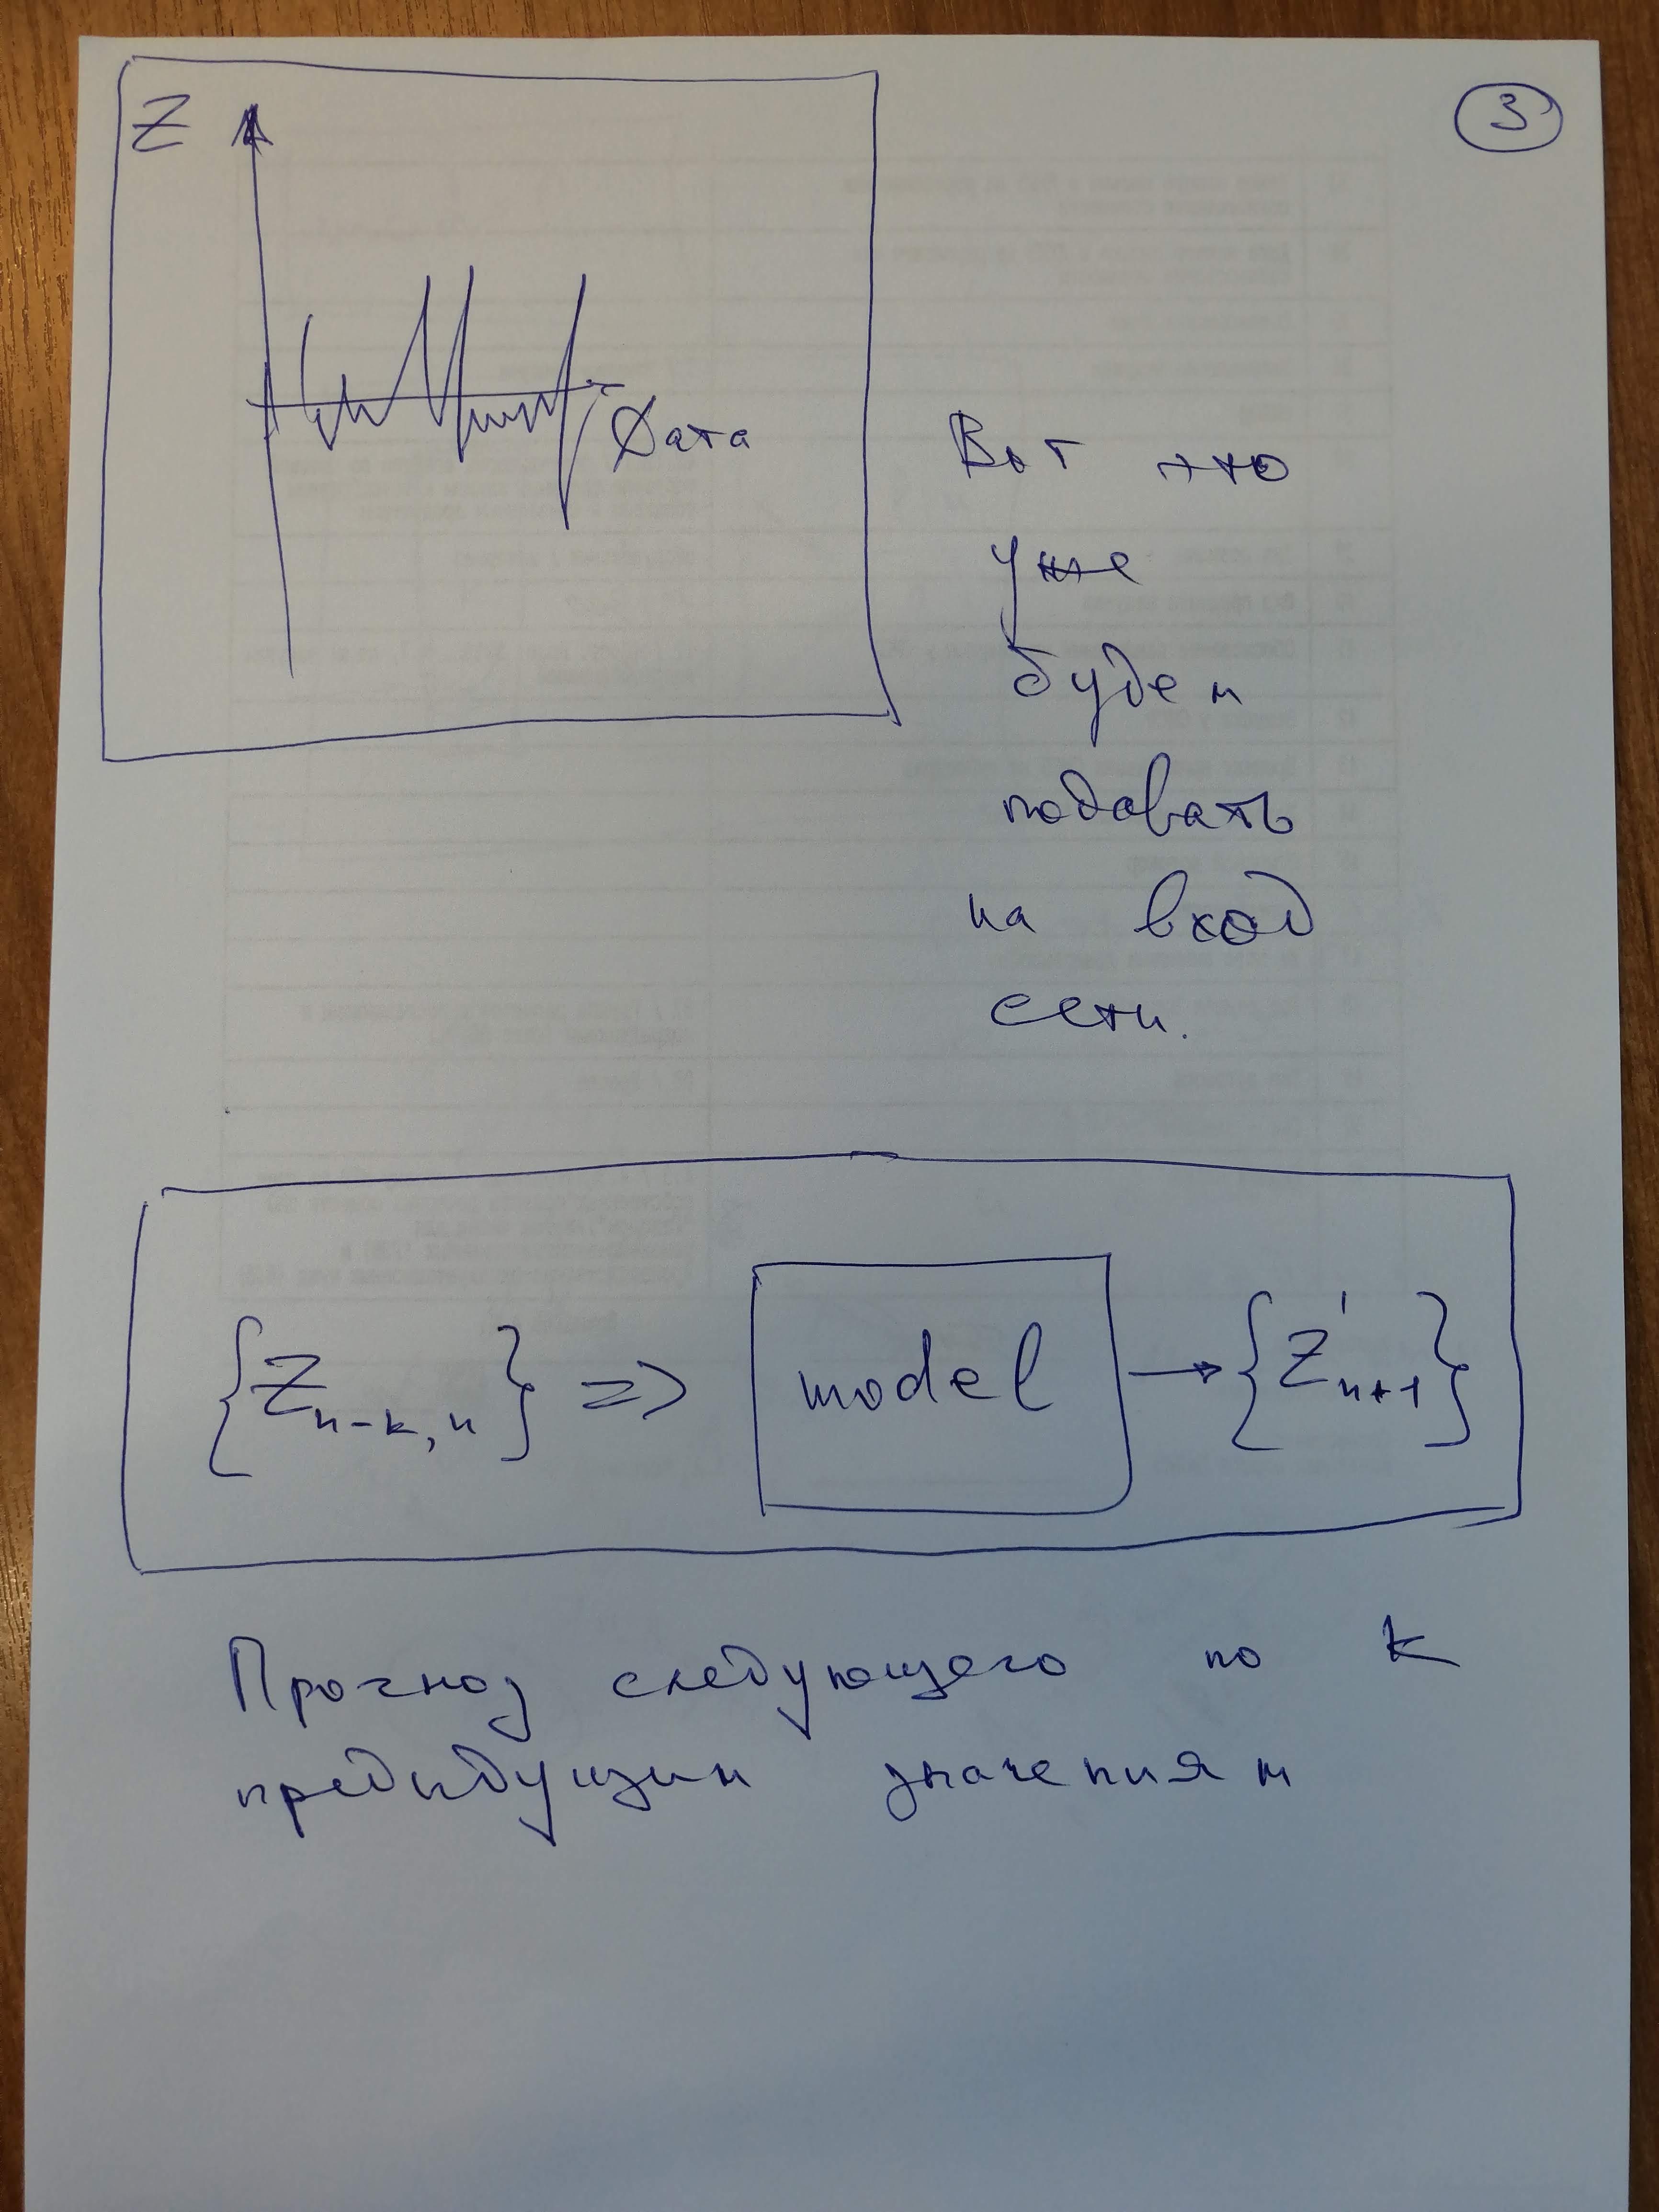 3
Z
Дата
Вот это
уже
будем
подавать
на вход
сети.
{Z_{n-k,n}} => model → {Z'_{n+1}}
Прогноз следующего по k
предыдущим значениям